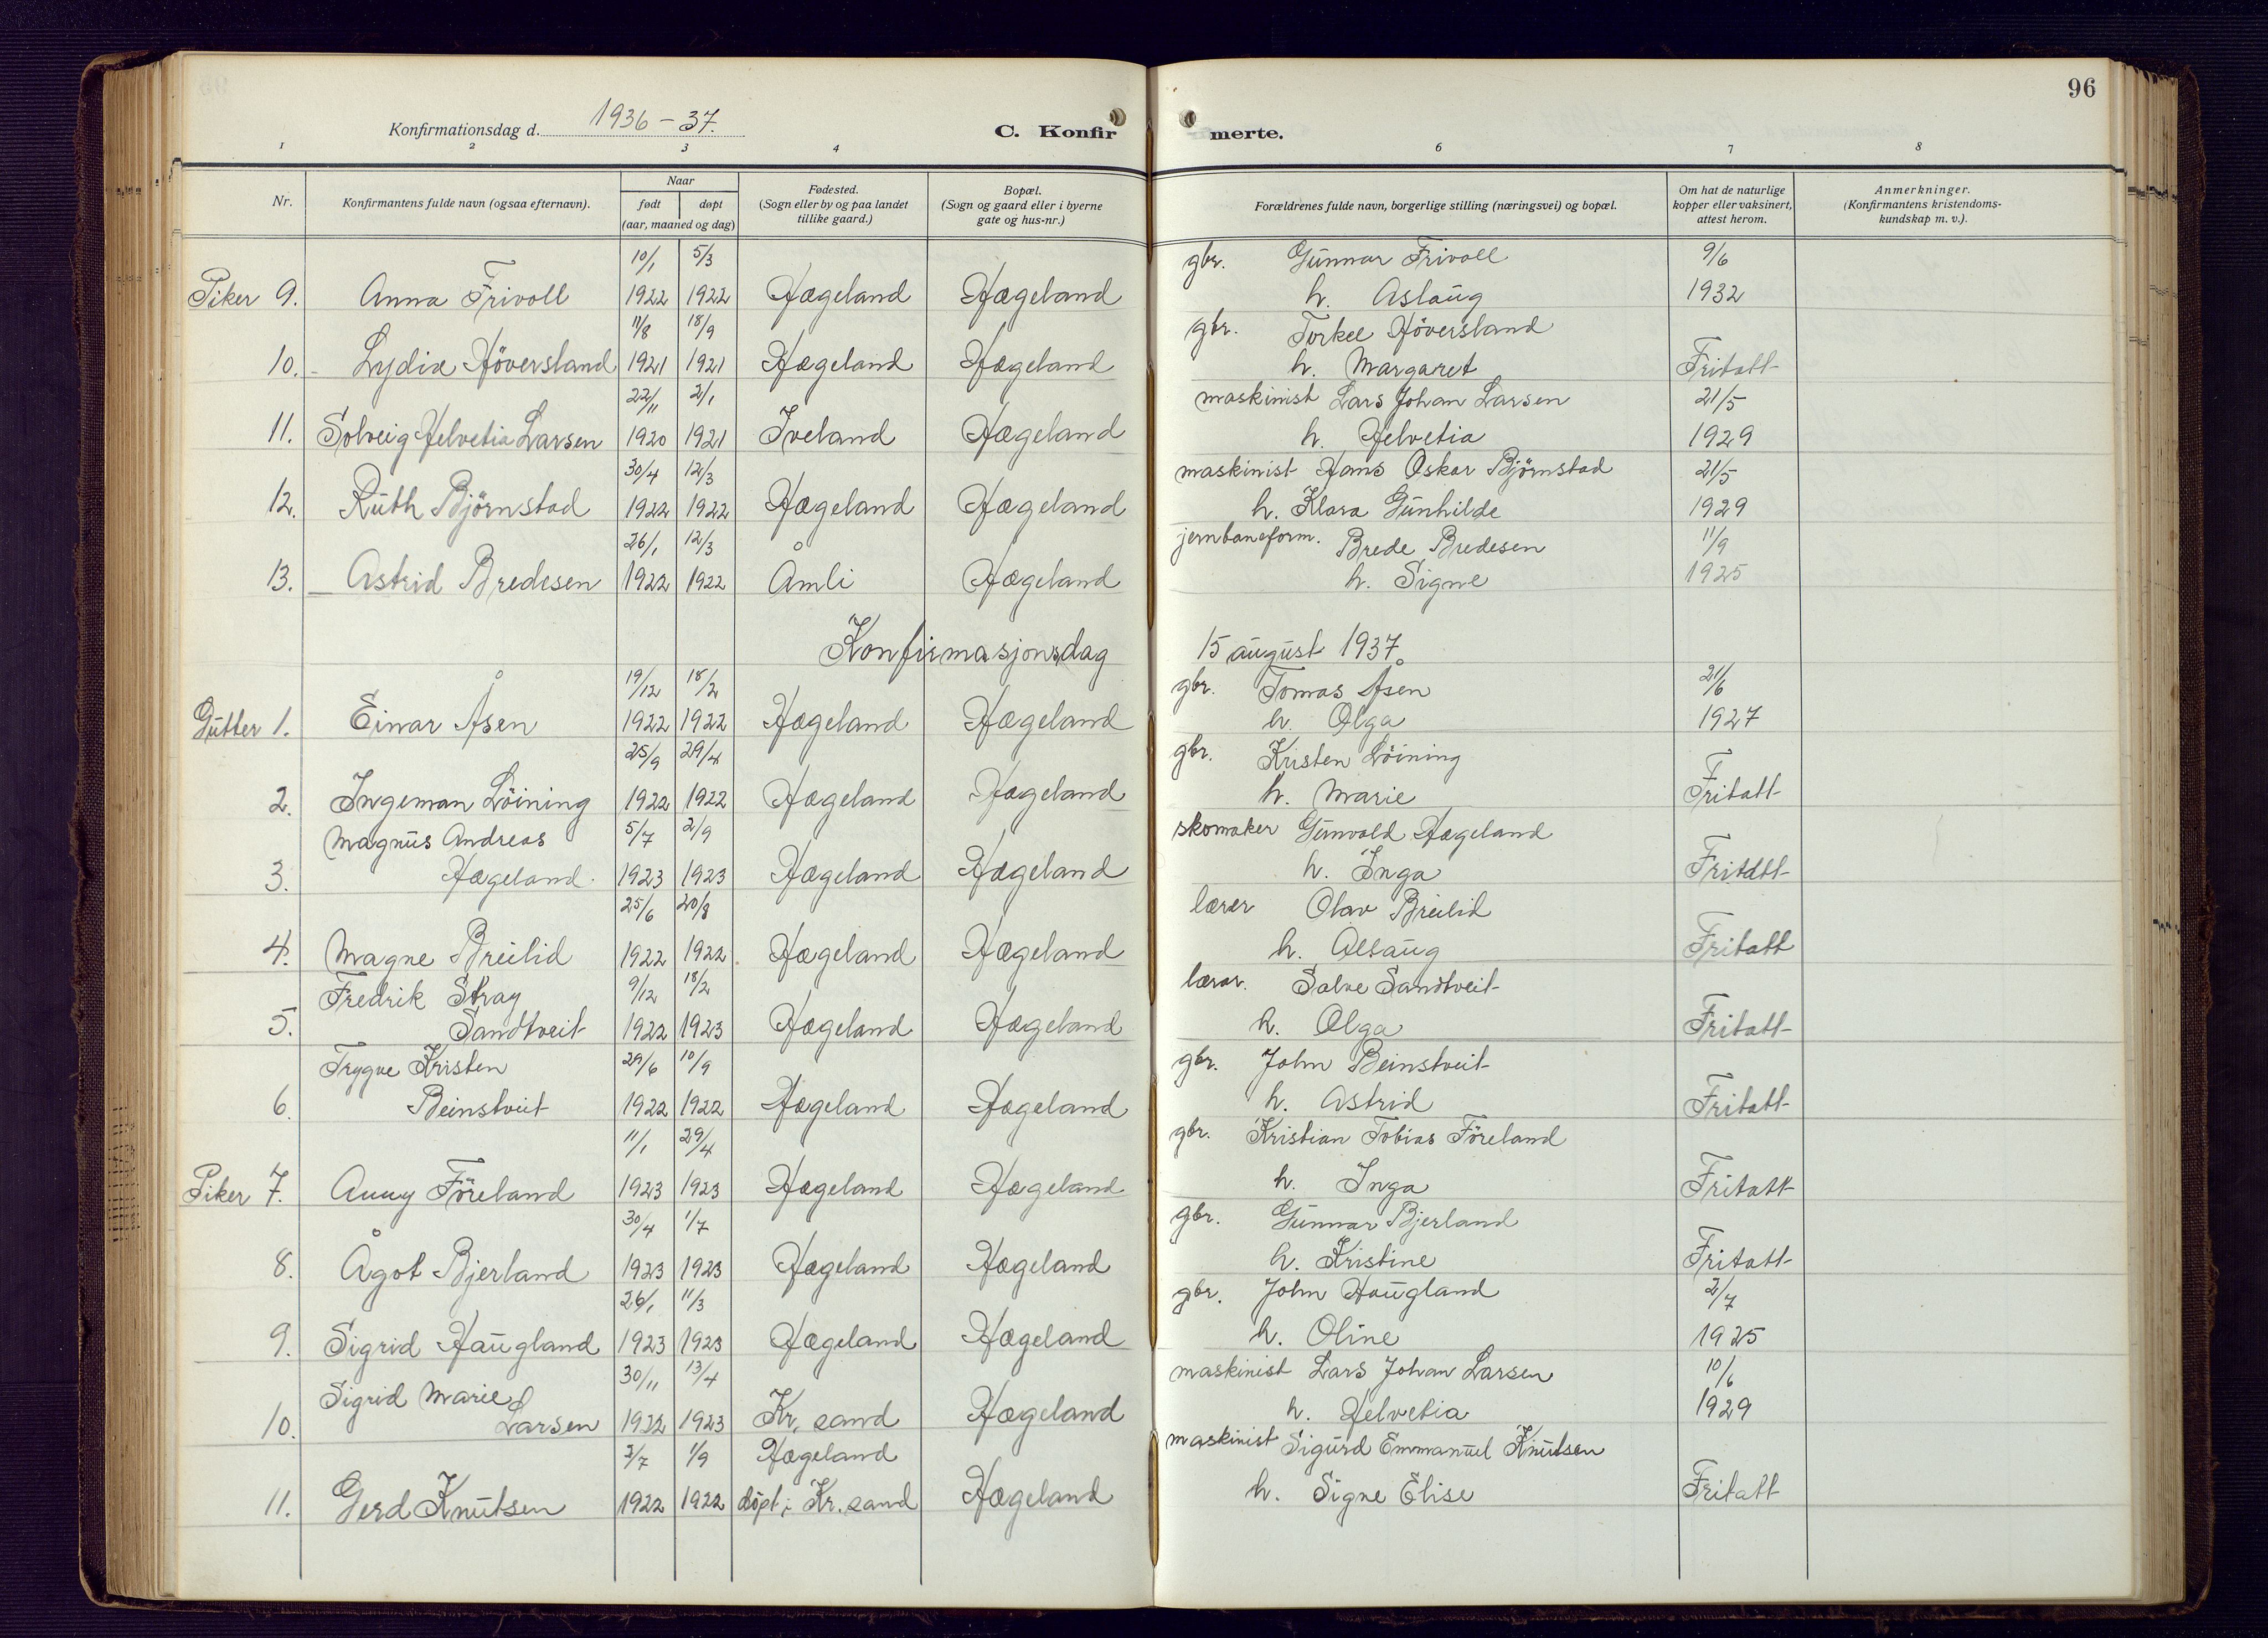 96
Konfirmationsdag d. 1936-37.
C. Konfirmerte.
1 2 3 4 5 6 7 8
Nr.
Konfirmantens fulde navn (ogsaa efternavn).
Naar
født døpt
(aar, maaned og dag)
Fødested.
(Sogn eller by og paa landet
tillike gaard.)
Bopæl.
(Sogn og gaard eller i byerne
gate og hus-nr.)
Forældrenes fulde navn, borgerlige stilling (næringsvei) og bopæl.
Om hat de naturlige
kopper eller vaksinert,
attest herom.
Anmerkninger.
(Konfirmantens kristendoms-
kundskap m. v.).
10/1 5/3 gbr. Gunnar Frivoll 9/6
Piker 9. Anna Frivoll 1922 1922 Hægeland Hægeland h. Aslaug 1932
11/8 18/9 gbr. Torkel Höversland
10. Lydia Höversland 1921 1921 Hægeland Hægeland h. Margaret Fritatt
22/11 2/1 maskinist Lars Johan Larsen 21/5
11. Solveig Helvetia Larsen 1920 1921 Iveland Hægeland h. Helvetia 1929
30/4 12/3 maskinist Hans Oskar Björnstad 21/5
12. Ruth Björnstad 1922 1922 Hægeland Hægeland h. Klara Gunhilde 1929
26/1 12/3 jernbaneform. Brede Bredesen 11/9
13. Astrid Bredesen 1922 1922 Åmli Hægeland h. Signe 1925
Konfirmasjonsdag 15 august 1937
19/12 18/2 gbr. Tomas Åsen 21/6
Gutter 1. Einar Åsen 1922 1922 Hægeland Hægeland h. Olga 1927
25/9 29/4 gbr. Kristen Löining
2. Ingeman Löining 1922 1922 Hægeland Hægeland h. Marie Fritatt
Magnus Andreas 5/7 2/9 skomaker Gunvald Hægeland
3. Hægeland 1923 1923 Hægeland Hægeland h. Inga Fritatt
25/6 20/8 lærer Olav Breilid
4. Magne Breilid 1922 1922 Hægeland Hægeland h. Alsaug Fritatt
Fredrik Stray 9/12 18/2 lærar. Salve Sandtveit
5. Sandtveit 1922 1923 Hægeland Hægeland h. Olga Fritatt
Trygve Kristen 29/6 10/9 gbr. John Beinstveit
6. Beinstveit 1922 1922 Hægeland Hægeland h. Astrid Fritatt
11/1 29/4 gbr. Kristian Tobias Föreland
Piker 7. Anny Föreland 1923 1923 Hægeland Hægeland h. Inga Fritatt
30/4 1/7 gbr. Gunnar Bjerland
8. Ågot Bjerland 1923 1923 Hægeland Hægeland h. Kristine Fritatt
26/1 11/3 gbr. John Haugland 2/7
9. Sigrid Haugland 1923 1923 Hægeland Hægeland h. Oline 1925
Sigrid Marie 30/11 13/4 maskinist Lars Johan Larsen 10/6
10. Larsen 1922 1923 Kr. sand Hægeland h. Helvetia 1929
7/7 1/9 Hægeland maskinist Sigurd Emmanuel Knutsen
11. Gerd Knutsen 1922 1922 döpt i Kr. sand Hægeland h. Signe Elise Fritatt